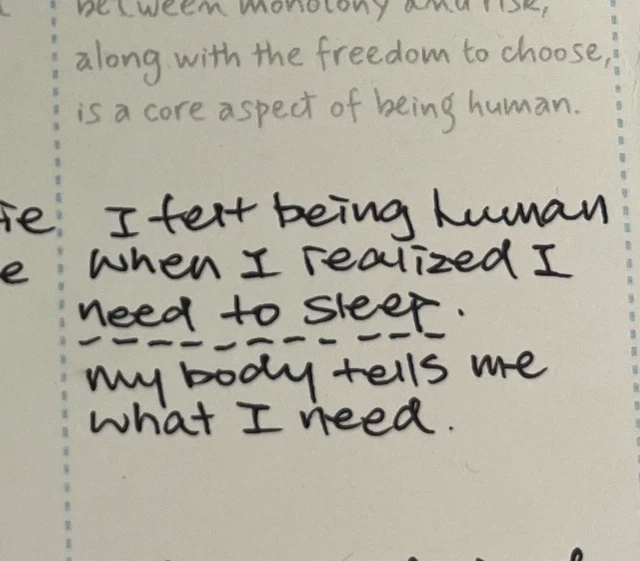 between monotony and risk,
along with the freedom to choose,
is a core aspect of being human.
I felt being human
when I realized I
need to sleep.
my body tells me
what I need.